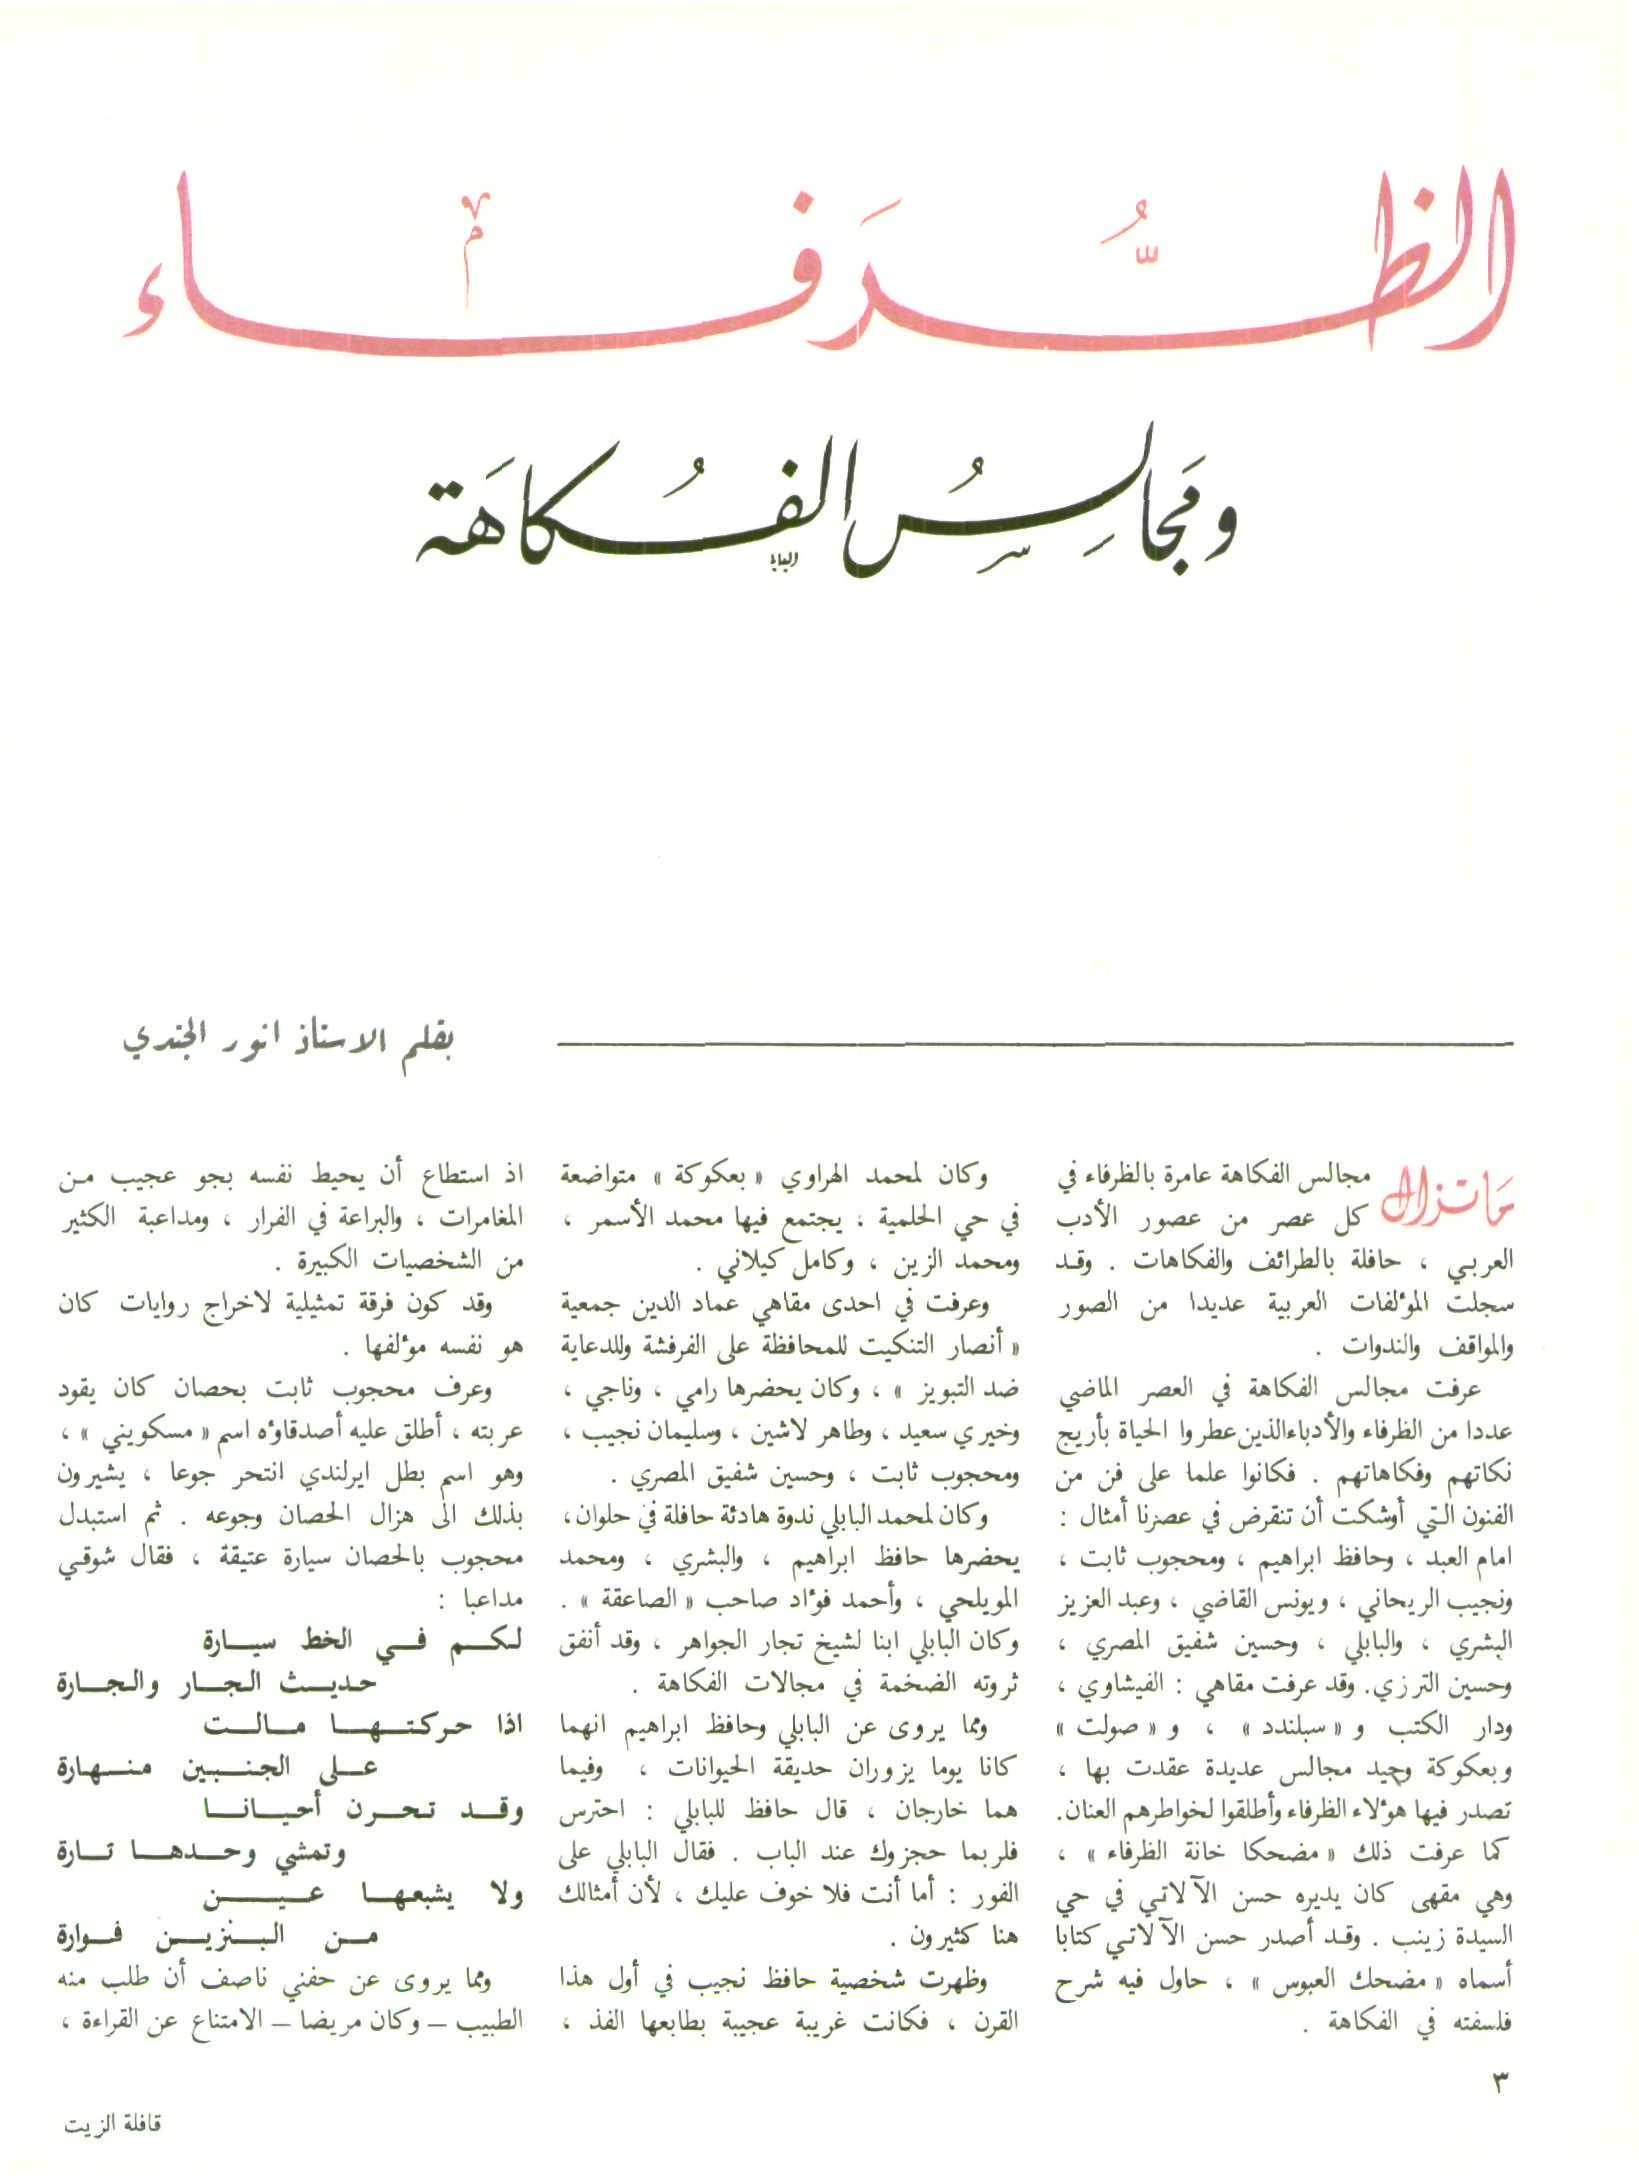 الظُّرَفاء
ومَجالِسُ الفُكاهَة
بقلم الاستاذ انور الجندي
مَا تزال مجالس الفكاهة عامرة بالظرفاء في
كل عصر من عصور الأدب
العربي ، حافلة بالطرائف والفكاهات . وقد
سجلت المؤلفات العربية عديدا من الصور
والمواقف والندوات .
عرفت مجالس الفكاهة في العصر الماضي
عددا من الظرفاء والأدباء الذين عطروا الحياة بأريج
نكاتهم وفكاهاتهم . فكانوا علما على فن من
الفنون التي أوشكت أن تنقرض في عصرنا أمثال :
امام العبد ، وحافظ ابراهيم ، ومحجوب ثابت ،
ونجيب الريحاني ، ويونس القاضي ، وعبد العزيز
البشري ، والبابلي ، وحسين شفيق المصري ،
وحسين الترزي. وقد عرفت مقاهي : الفيشاوي ،
ودار الكتب و « سبلندد » ، و « صولت »
وبعكوكة وحيد مجالس عديدة عقدت بها ،
تصدر فيها هؤلاء الظرفاء وأطلقوا لخواطرهم العنان.
كما عرفت ذلك « مضحكا خانة الظرفاء » ،
وهي مقهى كان يديره حسن الآلاتي في حي
السيدة زينب . وقد أصدر حسن الآلاتي كتابا
أسماه « مضحك العبوس » ، حاول فيه شرح
فلسفته في الفكاهة .
وكان لمحمد الهراوي « بعكوكة » متواضعة
في حي الحلمية ، يجتمع فيها محمد الأسمر ،
ومحمد الزين ، وكامل كيلاني .
وعرفت في احدى مقاهي عماد الدين جمعية
« أنصار التنكيت للمحافظة على الفرفشة وللدعاية
ضد التبويز » ، وكان يحضرها رامي ، وناجي ،
وخيري سعيد ، وطاهر لاشين ، وسليمان نجيب ،
ومحجوب ثابت ، وحسين شفيق المصري .
وكان لمحمد البابلي ندوة هادئة حافلة في حلوان،
يحضرها حافظ ابراهيم ، والبشري ، ومحمد
المويلحي ، وأحمد فؤاد صاحب « الصاعقة » .
وكان البابلي ابنا لشيخ تجار الجواهر ، وقد أنفق
ثروته الضخمة في مجالات الفكاهة .
ومما يروى عن البابلي وحافظ ابراهيم انهما
كانا يوما يزوران حديقة الحيوانات ، وفيما
هما خارجان ، قال حافظ للبابلي : احترس
فلربما حجزوك عند الباب . فقال البابلي على
الفور : أما أنت فلا خوف عليك ، لأن أمثالك
هنا كثيرون .
وظهرت شخصية حافظ نجيب في أول هذا
القرن ، فكانت غريبة عجيبة بطابعها الفذ ،
اذ استطاع أن يحيط نفسه بجو عجيب من
المغامرات ، والبراعة في الفرار ، ومداعبة الكثير
من الشخصيات الكبيرة .
وقد كون فرقة تمثيلية لاخراج روايات كان
هو نفسه مؤلفها .
وعرف محجوب ثابت بحصان كان يقود
عربته ، أطلق عليه أصدقاؤه اسم « مسكويني » ،
وهو اسم بطل ايرلندي انتحر جوعا ، يشيرون
بذلك الى هزال الحصان وجوعه . ثم استبدل
محجوب بالحصان سيارة عتيقة ، فقال شوقي
مداعبا :
لكم في الخط سيارة
حديث الجار والجارة
اذا حركتها مالت
على الجنبين منهارة
وقد تحرن أحيانا
وتمشي وحدها تارة
ولا يشبعها عين
من البنزين فوارة
ومما يروى عن حفني ناصف أن طلب منه
الطبيب – وكان مريضا – الامتناع عن القراءة ،
٣
قافلة الزيت